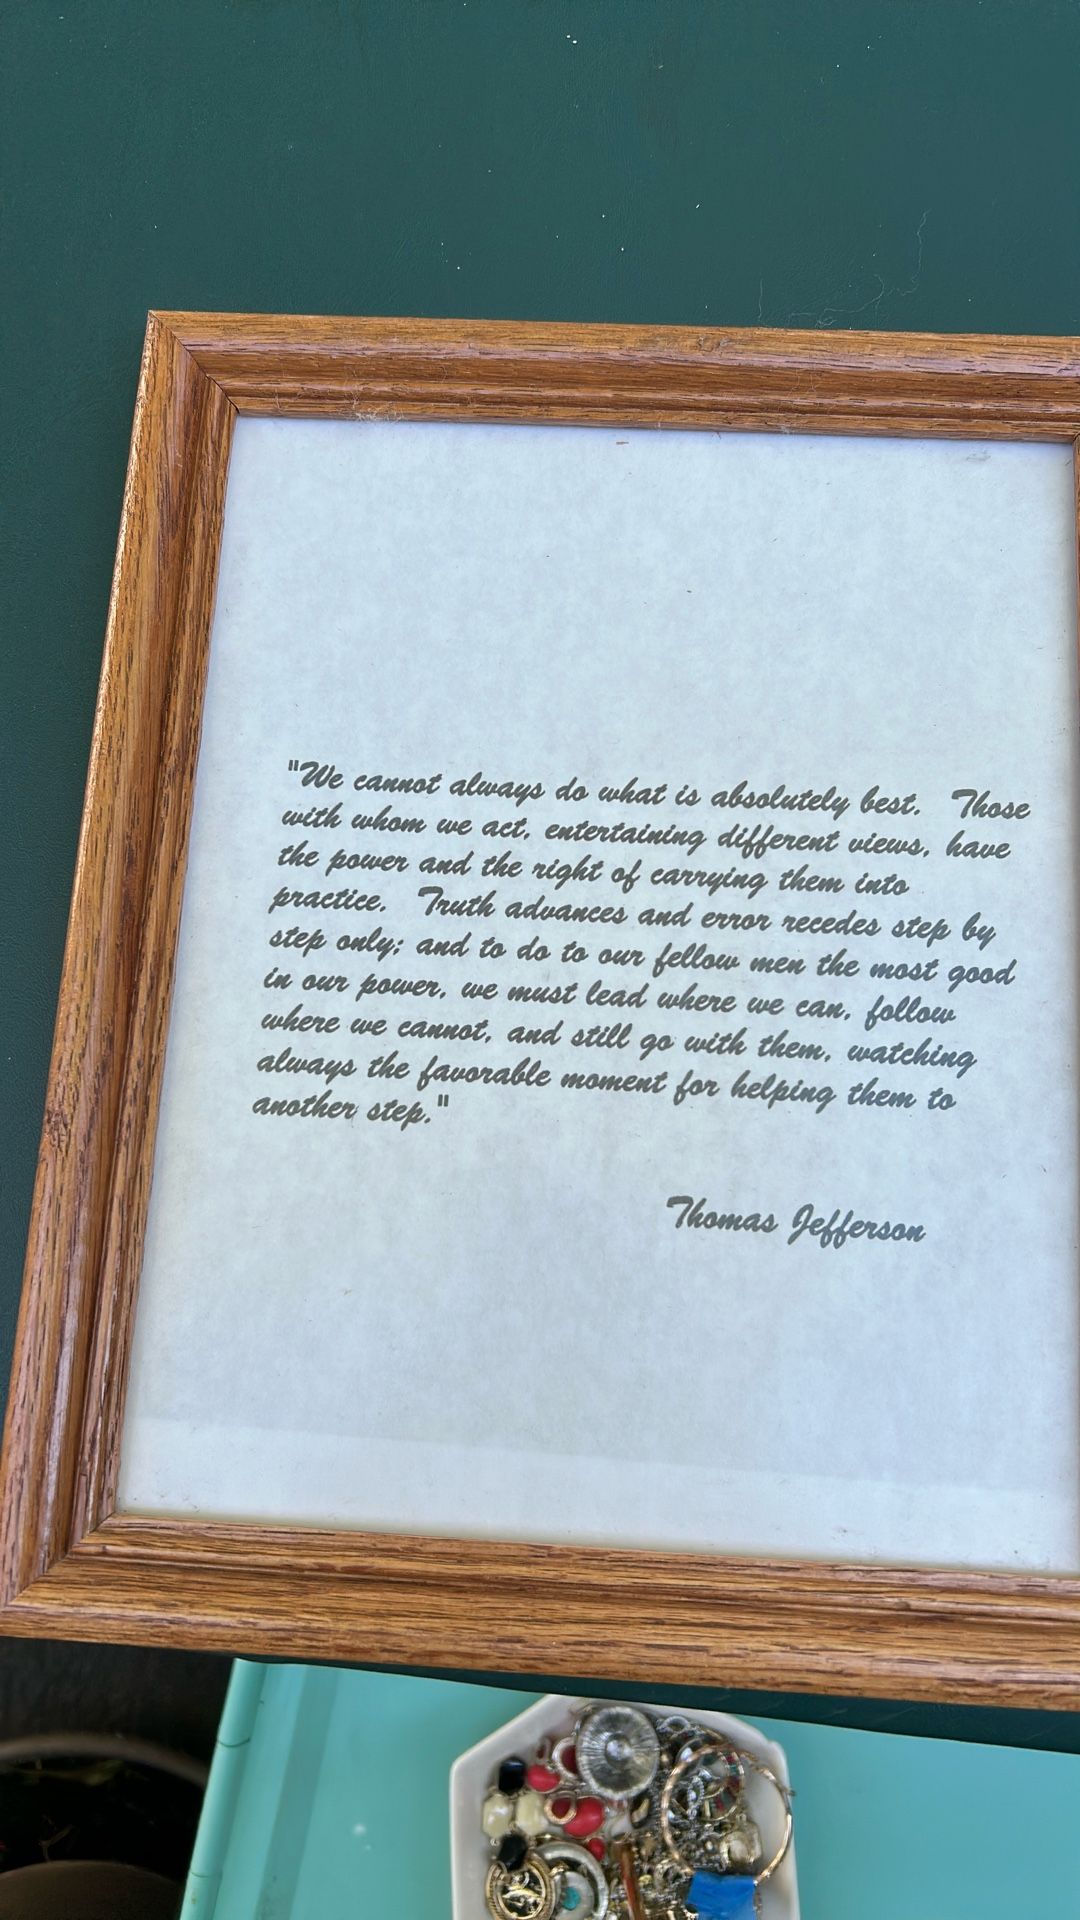 "We cannot always do what is absolutely best.  Those
with whom we act, entertaining different views, have
the power and the right of carrying them into
practice.  Truth advances and error recedes step by
step only; and to do to our fellow men the most good
in our power, we must lead where we can, follow
where we cannot, and still go with them, watching
always the favorable moment for helping them to
another step."
Thomas Jefferson